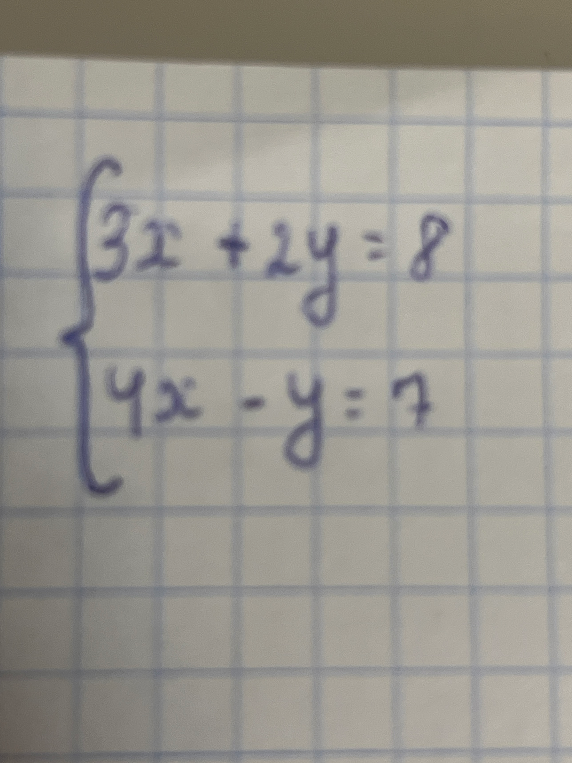 3x + 2y = 8
4x - y = 7